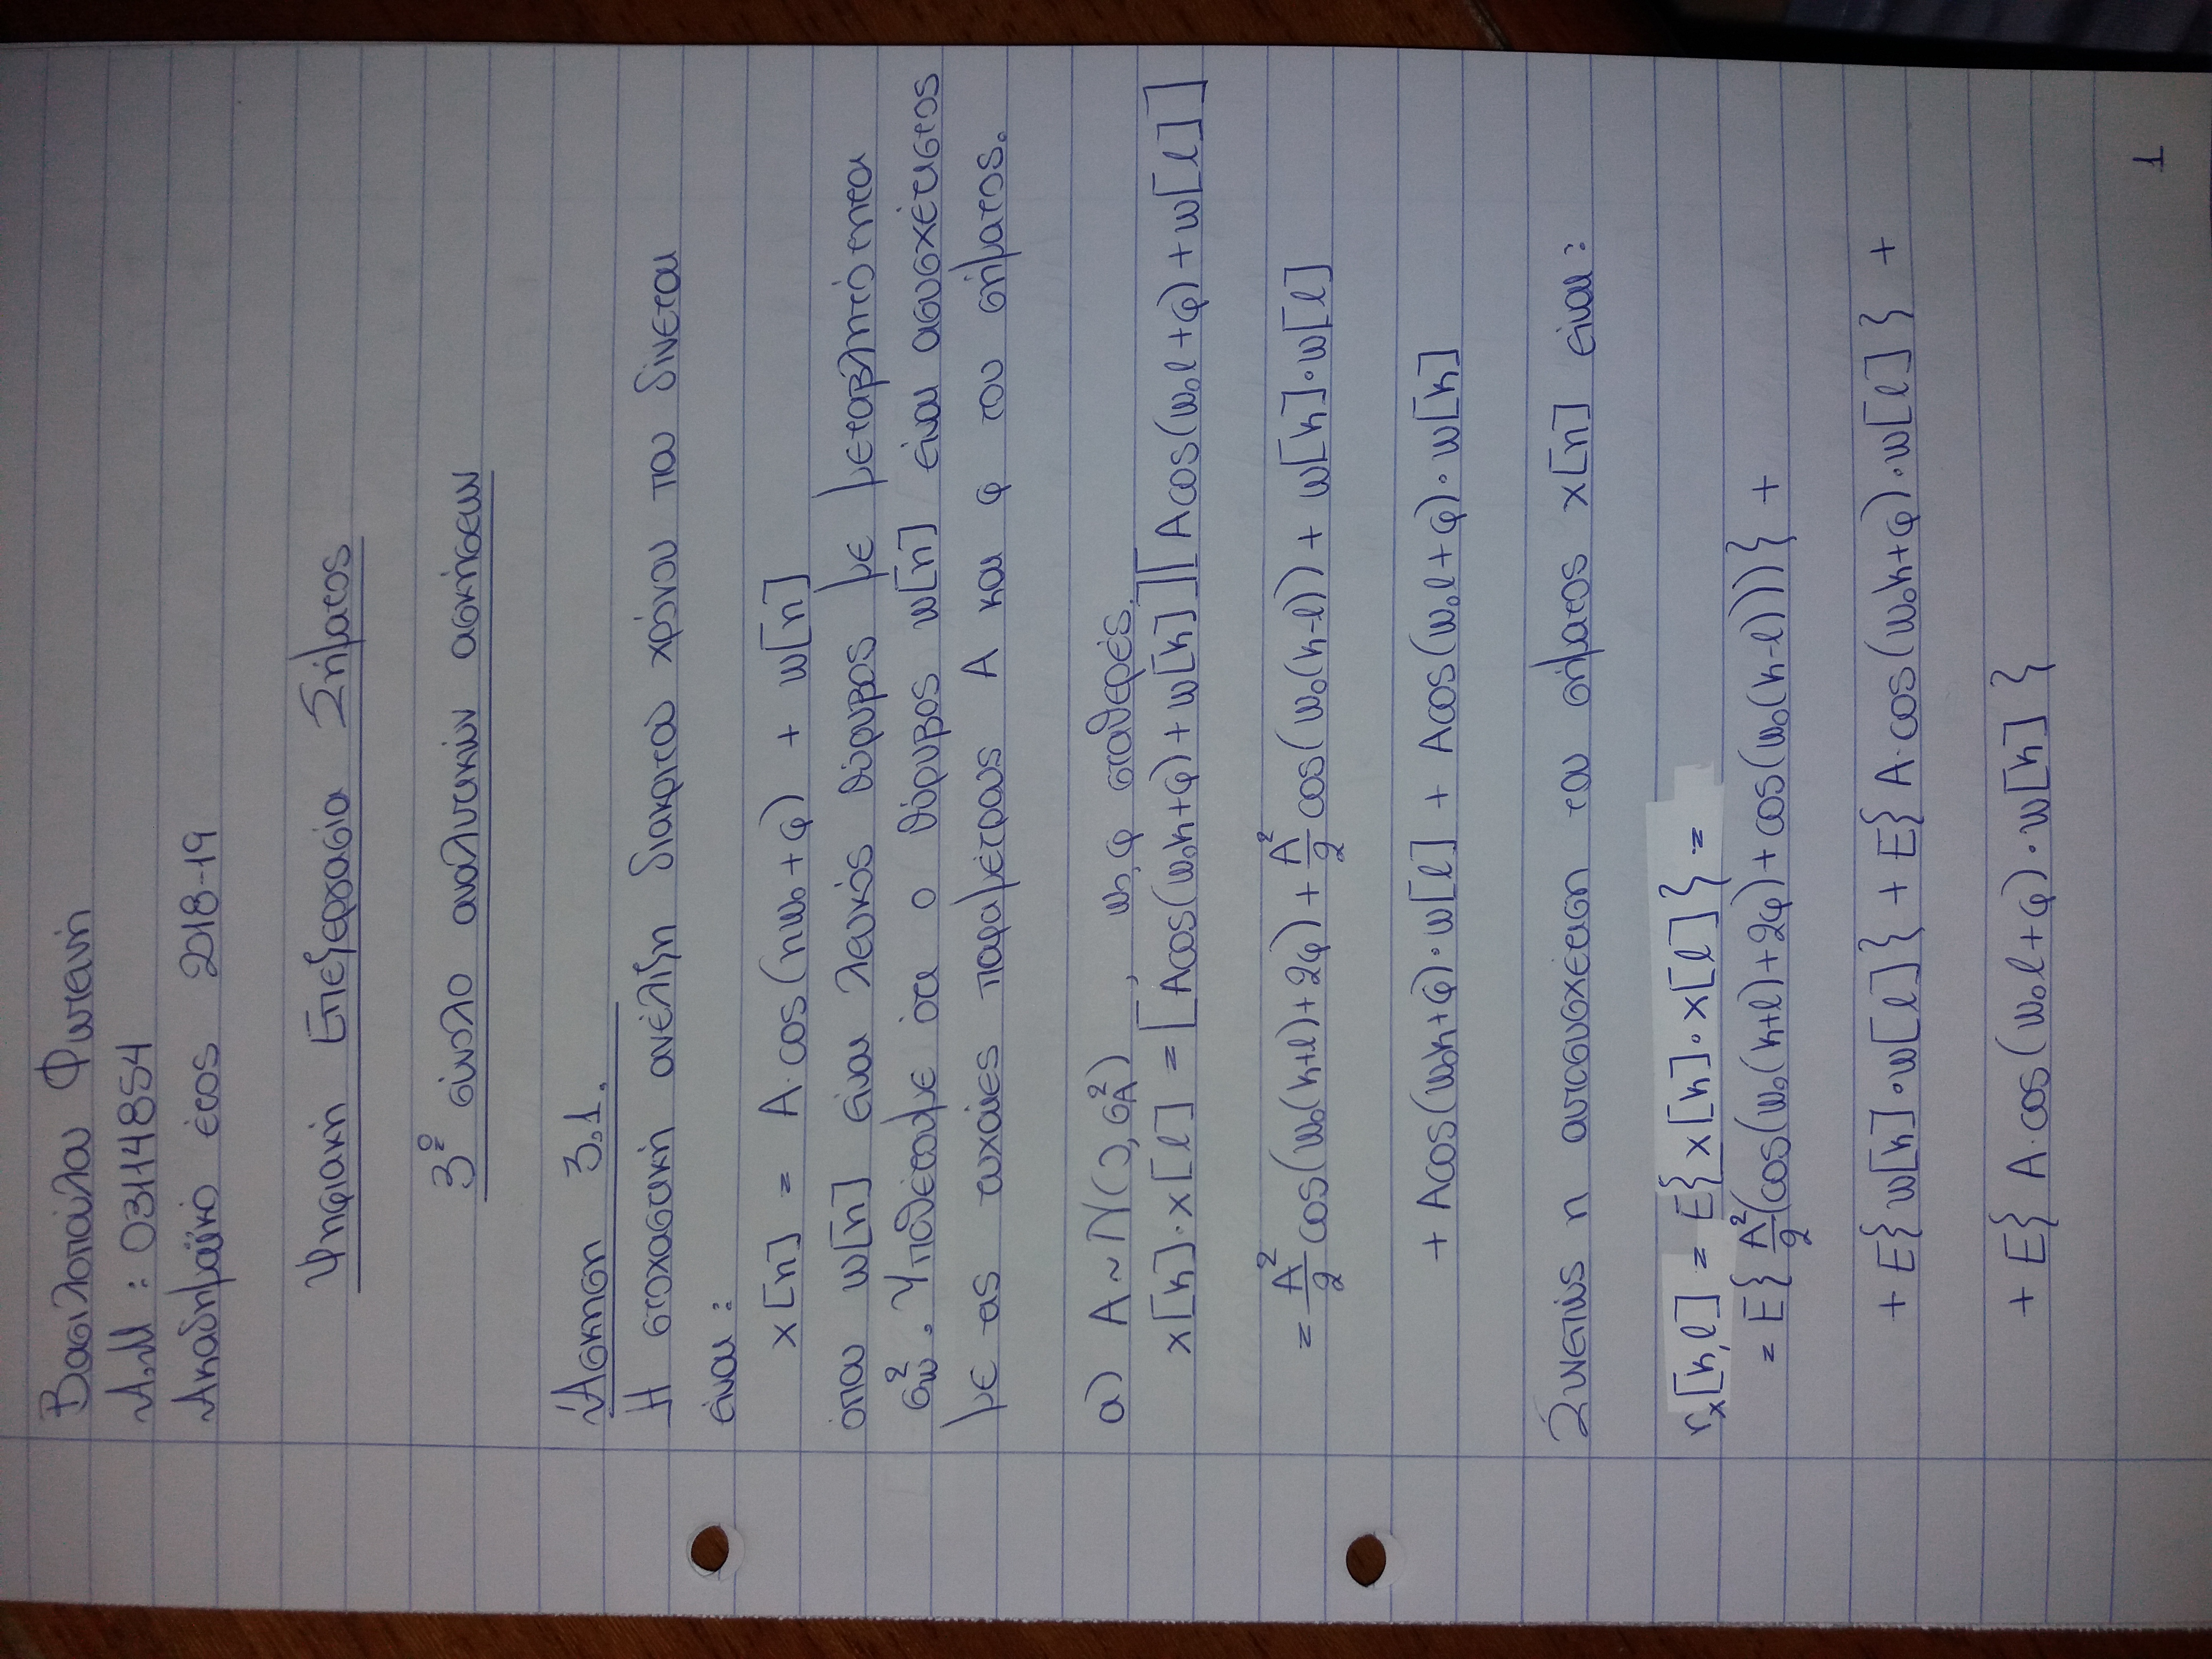 Βασιλοπούλου Φωτεινή
Α.Μ : 03114854
Ακαδημαϊκό έτος 2018-19
Ψηφιακή Επεξεργασία Σήματος
3º σύνολο αναλυτικών ασκήσεων
Άσκηση 3.1.
Η στοχαστική ανέλιξη διακριτού χρόνου που δίνεται
είναι :
x[n] = A·cos(nω₀+φ) + w[n]
όπου w[n] είναι λευκός θόρυβος με μεταβλητότητα
σw². Υποθέτουμε ότι ο θόρυβος w[n] είναι ασυσχέτιστος
με τις τυχαίες παραμέτρους A και φ του σήματος.
α) A ~ N(0, σA²) , ω₀, φ σταθερές.
x[k]·x[l] = [Acos(ω₀k+φ) + w[k]][Acos(ω₀l+φ) + w[l]]
= A²/2 cos(ω₀(k+l)+2φ) + A²/2 cos(ω₀(k-l)) + w[k]·w[l]
+ Acos(ω₀k+φ)·w[l] + Acos(ω₀l+φ)·w[k]
Συνεπώς η αυτοσυσχέτιση του σήματος x[n] είναι :
rₓ[k,l] = E{x[k]·x[l]} =
= E{A²/2(cos(ω₀(k+l)+2φ) + cos(ω₀(k-l)))} +
+ E{w[k]·w[l]} + E{A·cos(ω₀k+φ)·w[l]} +
+ E{A·cos(ω₀l+φ)·w[k]}
1